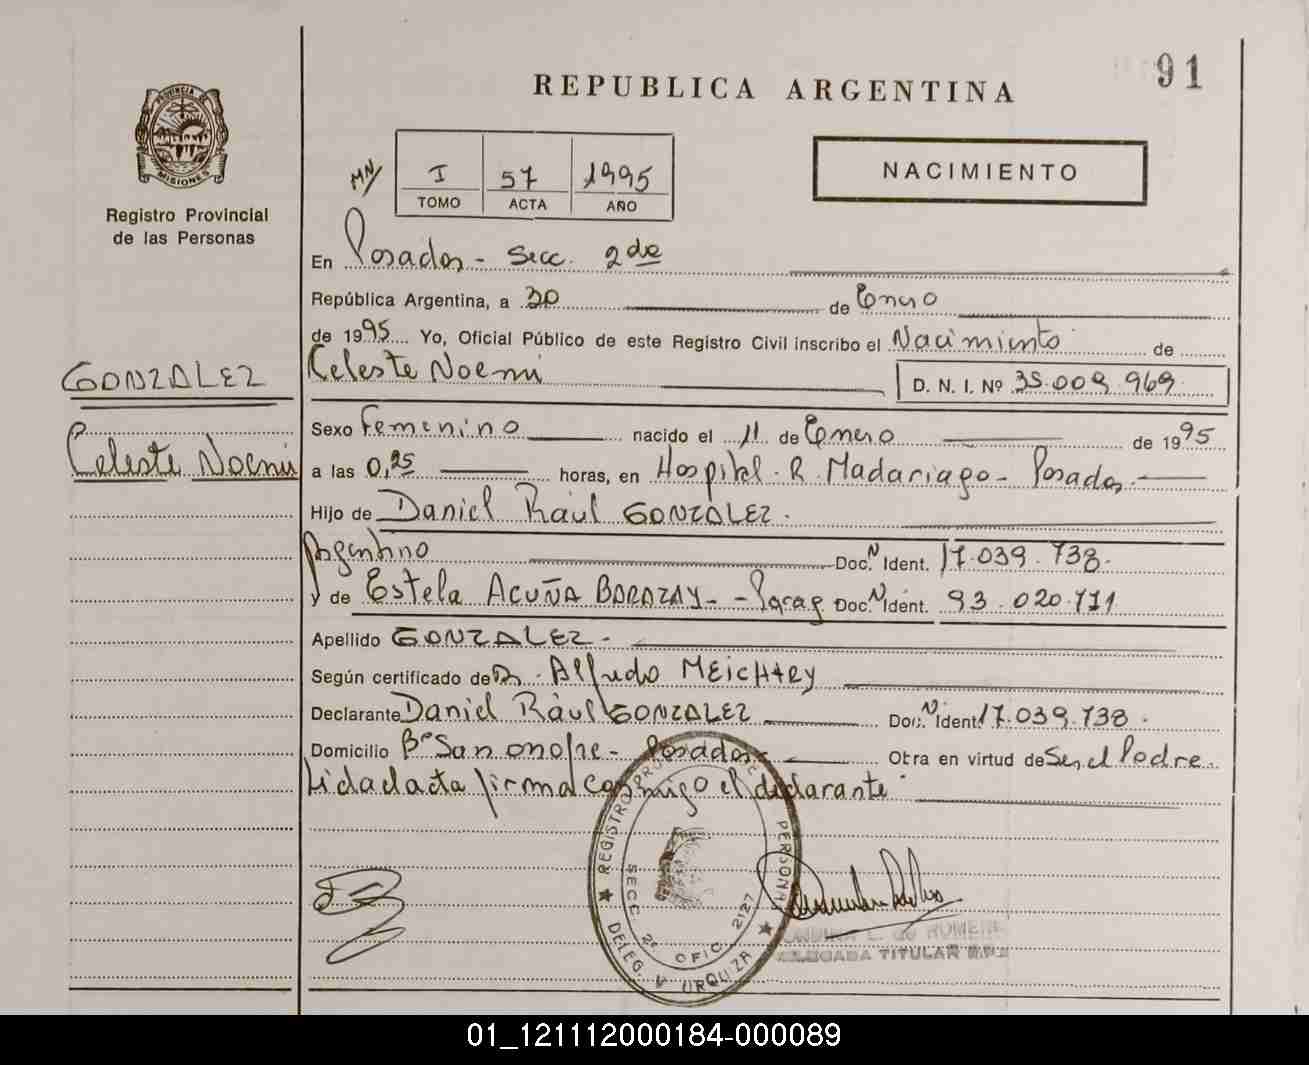 91
REPUBLICA ARGENTINA
PROVINCIA DE
MISIONES
Registro Provincial
de las Personas
MN
I 57 1995
TOMO ACTA AÑO
NACIMIENTO
En Posadas - Secc. 2da
República Argentina, a 30 de Enero
de 1995 Yo, Oficial Público de este Registro Civil inscribo el Nacimiento de
Celeste Noemi D. N. I. Nº 35.009.969
GONZALEZ
Celeste Noemi
Sexo Femenino nacido el 11 de Enero de 1995
a las 0,25 horas, en Hospital R. Madariaga - Posadas.
Hijo de Daniel Raúl GONZALEZ.
Argentino Doc. N Ident. 17.039.738.
y de Estela ACUÑA BARAZAY - Parag Doc. N Ident. 93.020.771
Apellido GONZALEZ.
Según certificado de Dr. Alfredo MEICHTRY
Declarante Daniel Raúl GONZALEZ Doc. N Ident. 17.039.738.
Domicilio Bº San Onofre - Posadas Obra en virtud de Ser el Padre.
Lida el acta firma conmigo el declarante
REGISTRO PERSONA
SECC 2ª OFIC. 2127
DELEG. V. URQUIZA
L. de ROMERO
DELEGADA TITULAR
01_121112000184-000089